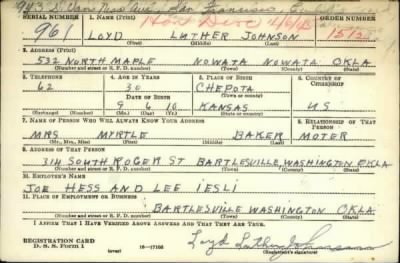 943 S. Van Ness Ave., San Francisco,
SERIAL NUMBER 1. NAME (Print) ORDER NUMBER
961 LOYD LUTHER JOHNSON
(First) (Middle) (Last)
2. ADDRESS (Print)
532 NORTH MAPLE NOWATA NOWATA OKLA
(Number and street or R. F. D. number) (Town) (County) (State)
3. TELEPHONE 4. AGE IN YEARS 5. PLACE OF BIRTH 6. COUNTRY OF CITIZENSHIP
62 30 CHEPOTA
DATE OF BIRTH (Town or county)
9 6 10 KANSAS U S
(Exchange) (Number) (Mo.) (Day) (Yr.) (State or country)
7. NAME OF PERSON WHO WILL ALWAYS KNOW YOUR ADDRESS 8. RELATIONSHIP OF THAT PERSON
MRS MYRTLE BAKER MOTER
(Mr., Mrs., Miss) (First) (Middle) (Last)
9. ADDRESS OF THAT PERSON
314 SOUTH ROGER ST BARTLESVILLE, WASHINGTON OKLA
(Number and street or R. F. D. number) (Town) (County) (State)
10. EMPLOYER'S NAME
JOE HESS AND LEE IESLI
11. PLACE OF EMPLOYMENT OR BUSINESS
BARTLESVILLE WASHINGTON OKLA
(Number and street or R. F. D. number) (Town) (County) (State)
I AFFIRM THAT I HAVE VERIFIED ABOVE ANSWERS AND THAT THEY ARE TRUE.
REGISTRATION CARD
D. S. S. FORM 1 (over) 16—17105 Loyd Luther Johnson
(Registrant's signature)